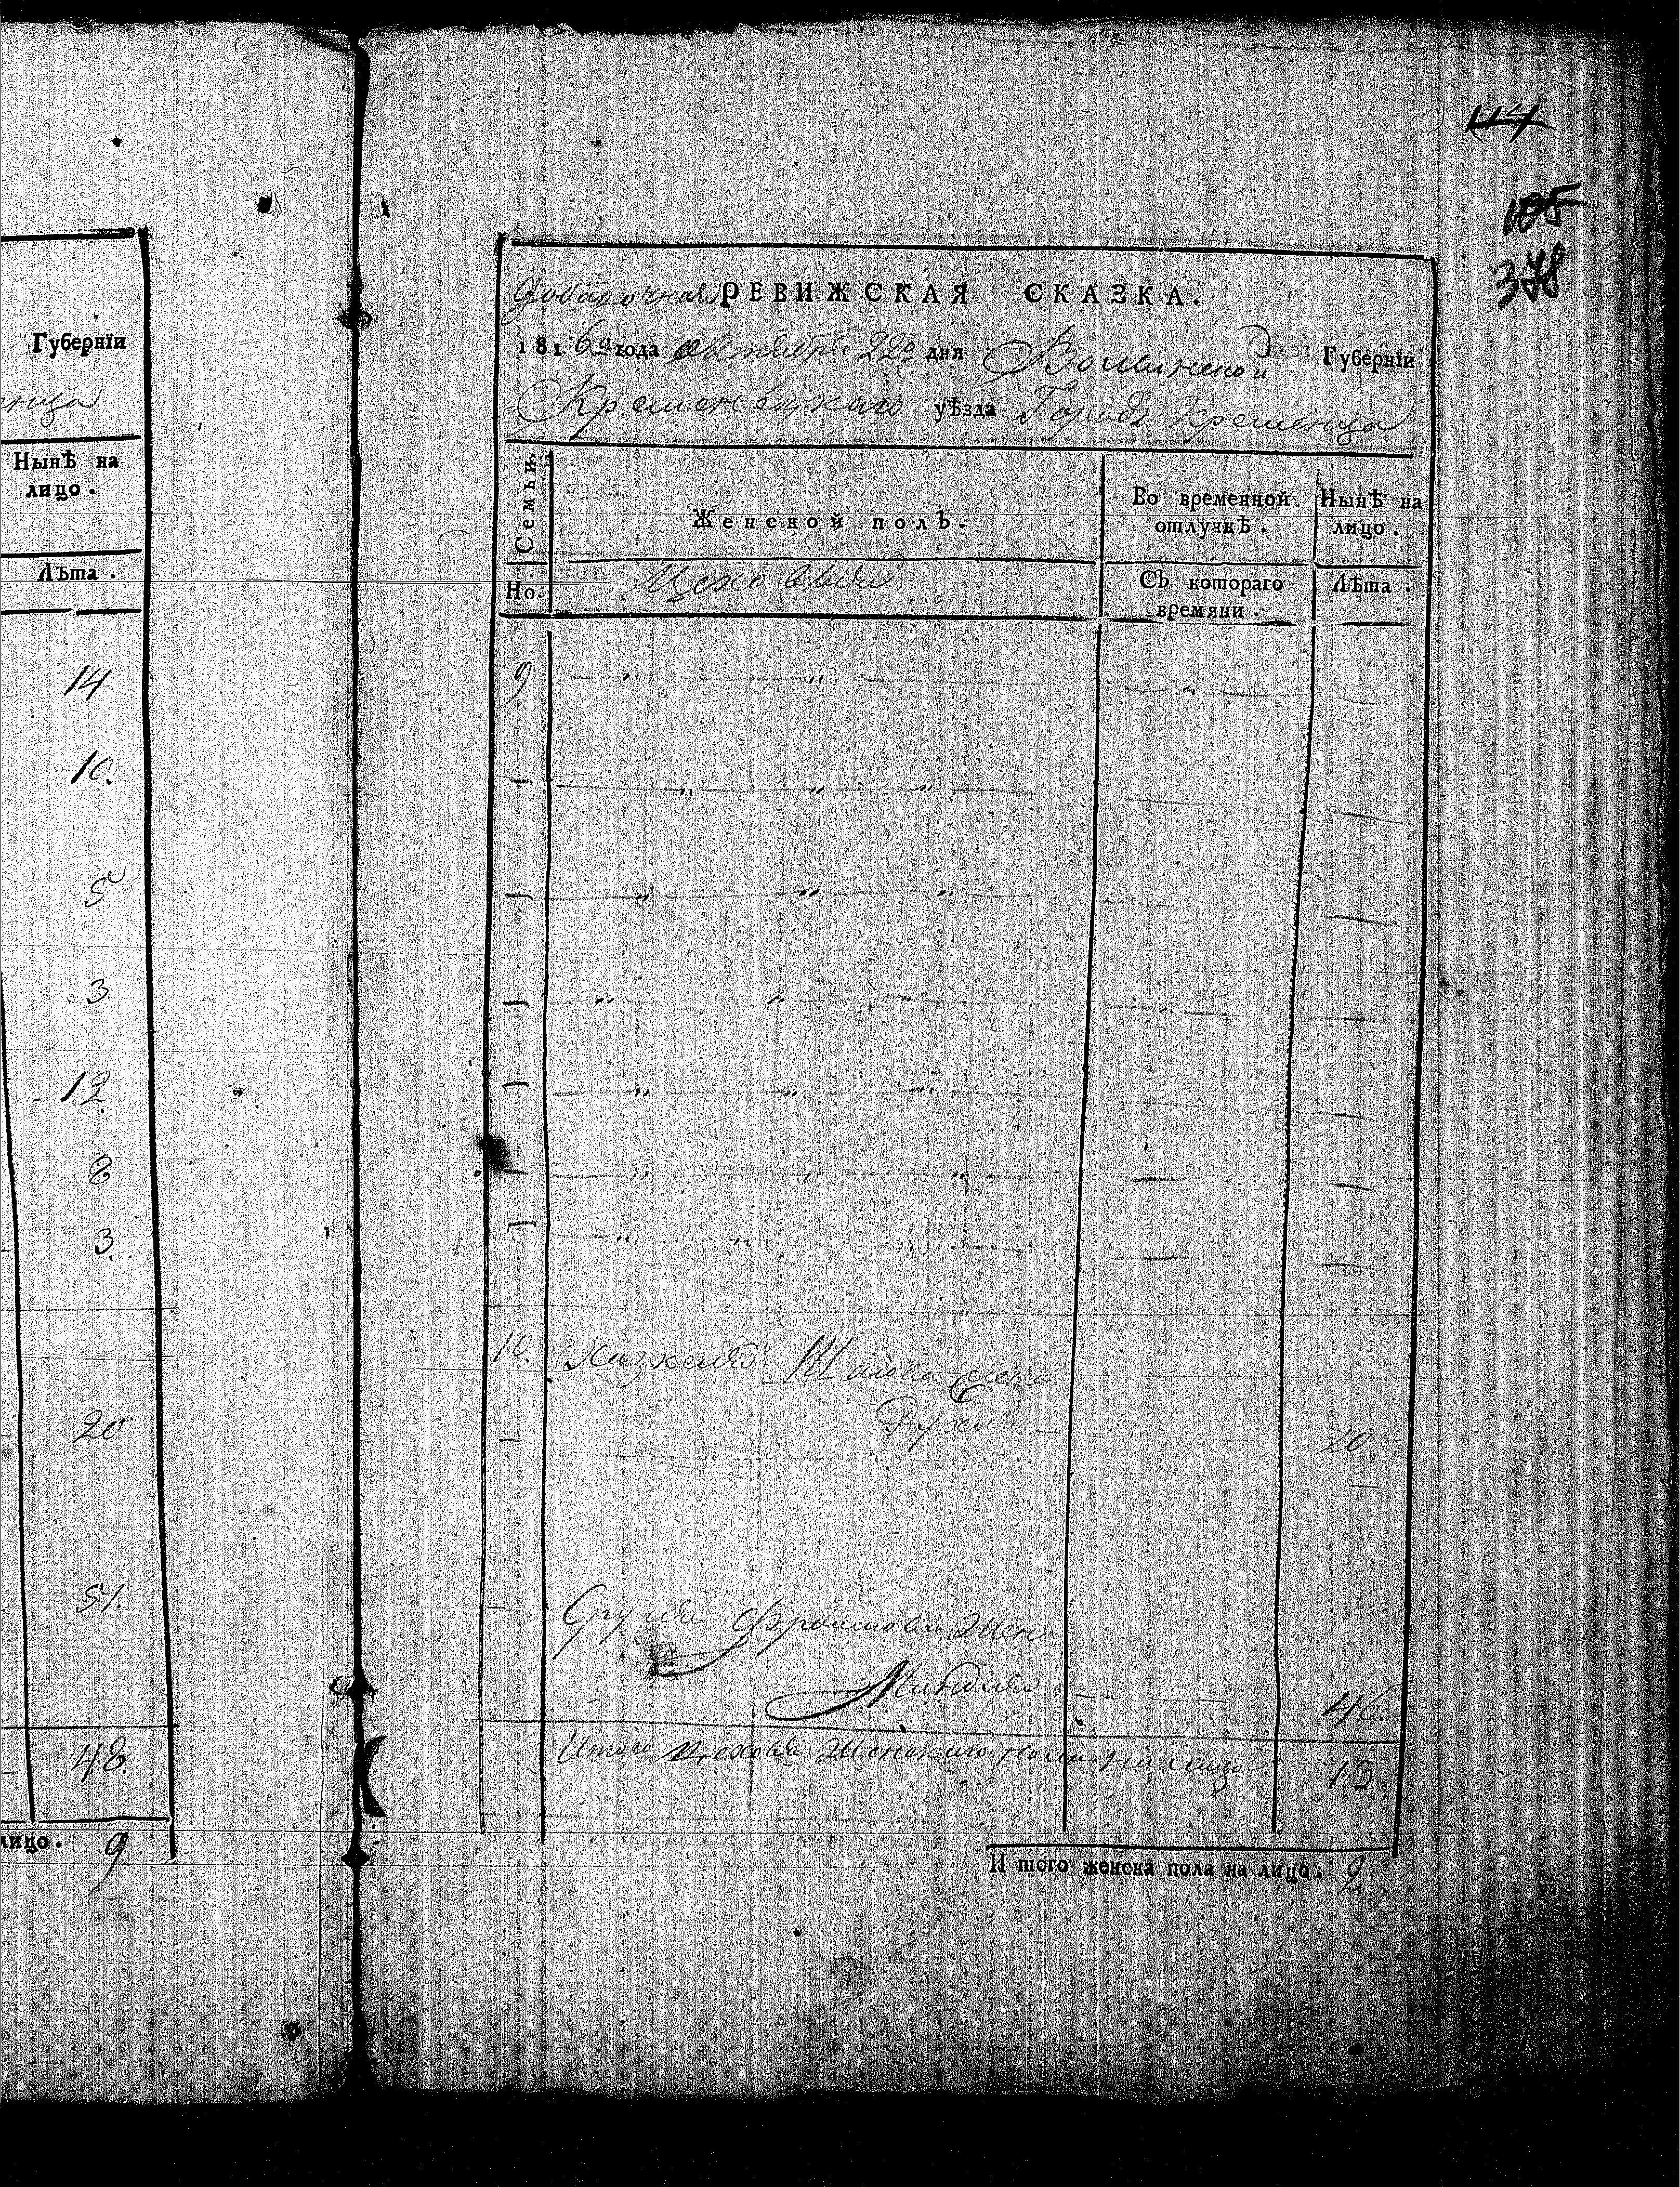 Губернїи
Нынѣ на
лицо.
Лѣта.
14
10.
5
3
12
8
3
20
51.
48.
лицо. 9
114
105
378
Добавочная РЕВИЖСКАЯ СКАЗКА.
1816го года октября 22го дня Волынской Губернїи
Кременецкаго уѣзда Города Кременца
Семьи.
Женской полъ.
Во временной отлучкѣ.
Нынѣ на лицо.
Но.
Цеховыя
Съ котораго времяни.
Лѣта.
9
10. Шаіова жена
Рухля 20
Фроимова жена
Миндля 46.
Итого цеховыя женскаго пола на лицо 13
И того женска пола на лицо. 2